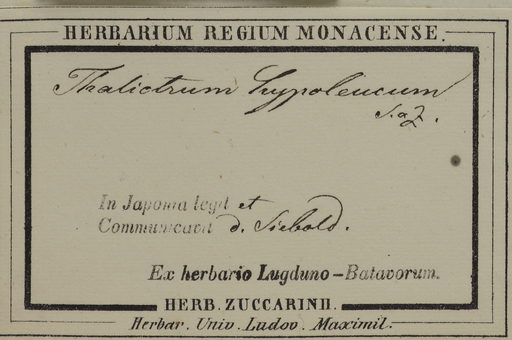 HERBARIUM REGIUM MONACENSE.
Thalictrum hypoleucum
S. a Z.
In Japonia legit et
Communicavit d. Siebold.
Ex herbario Lugduno-Batavorum.
HERB. ZUCCARINII.
Herbar. Univ. Ludov. Maximil.